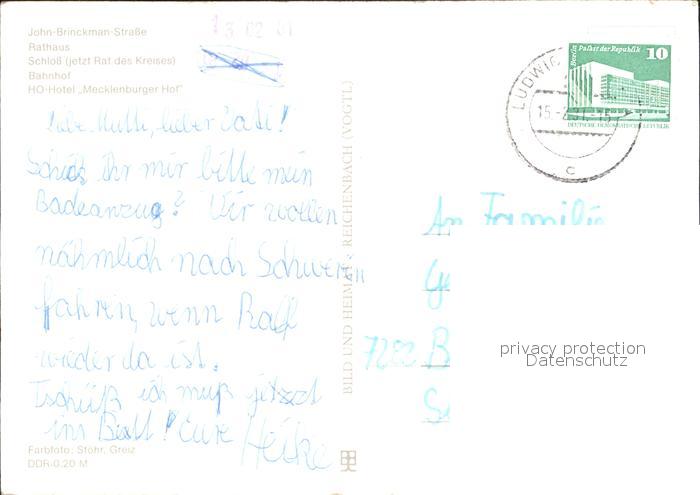 John-Brinckman-Straße
Rathaus
Schloß (jetzt Rat des Kreises)
Bahnhof
HO-Hotel „Mecklenburger Hof“
13 02 81
Liebe Mutti, lieber Vati!
Schickt Ihr mir bitte mein
Badeanzug? Wir wollen
nähmlich nach Schwerin
fahren, wenn Ralf
wieder da ist.
Tschüß ich muß jetzt
ins Bett! Eure Heike
Farbfoto: Stöhr, Greiz
DDR-0.20 M
BILD UND HEIMAT · REICHENBACH (VOGTL)
Berlin Palast der Republik
10
DEUTSCHE DEMOKRATISCHE REPUBLIK
LUDWIG
15-2.81-15
c
An Familie
7282 B
privacy protection
Datenschutz